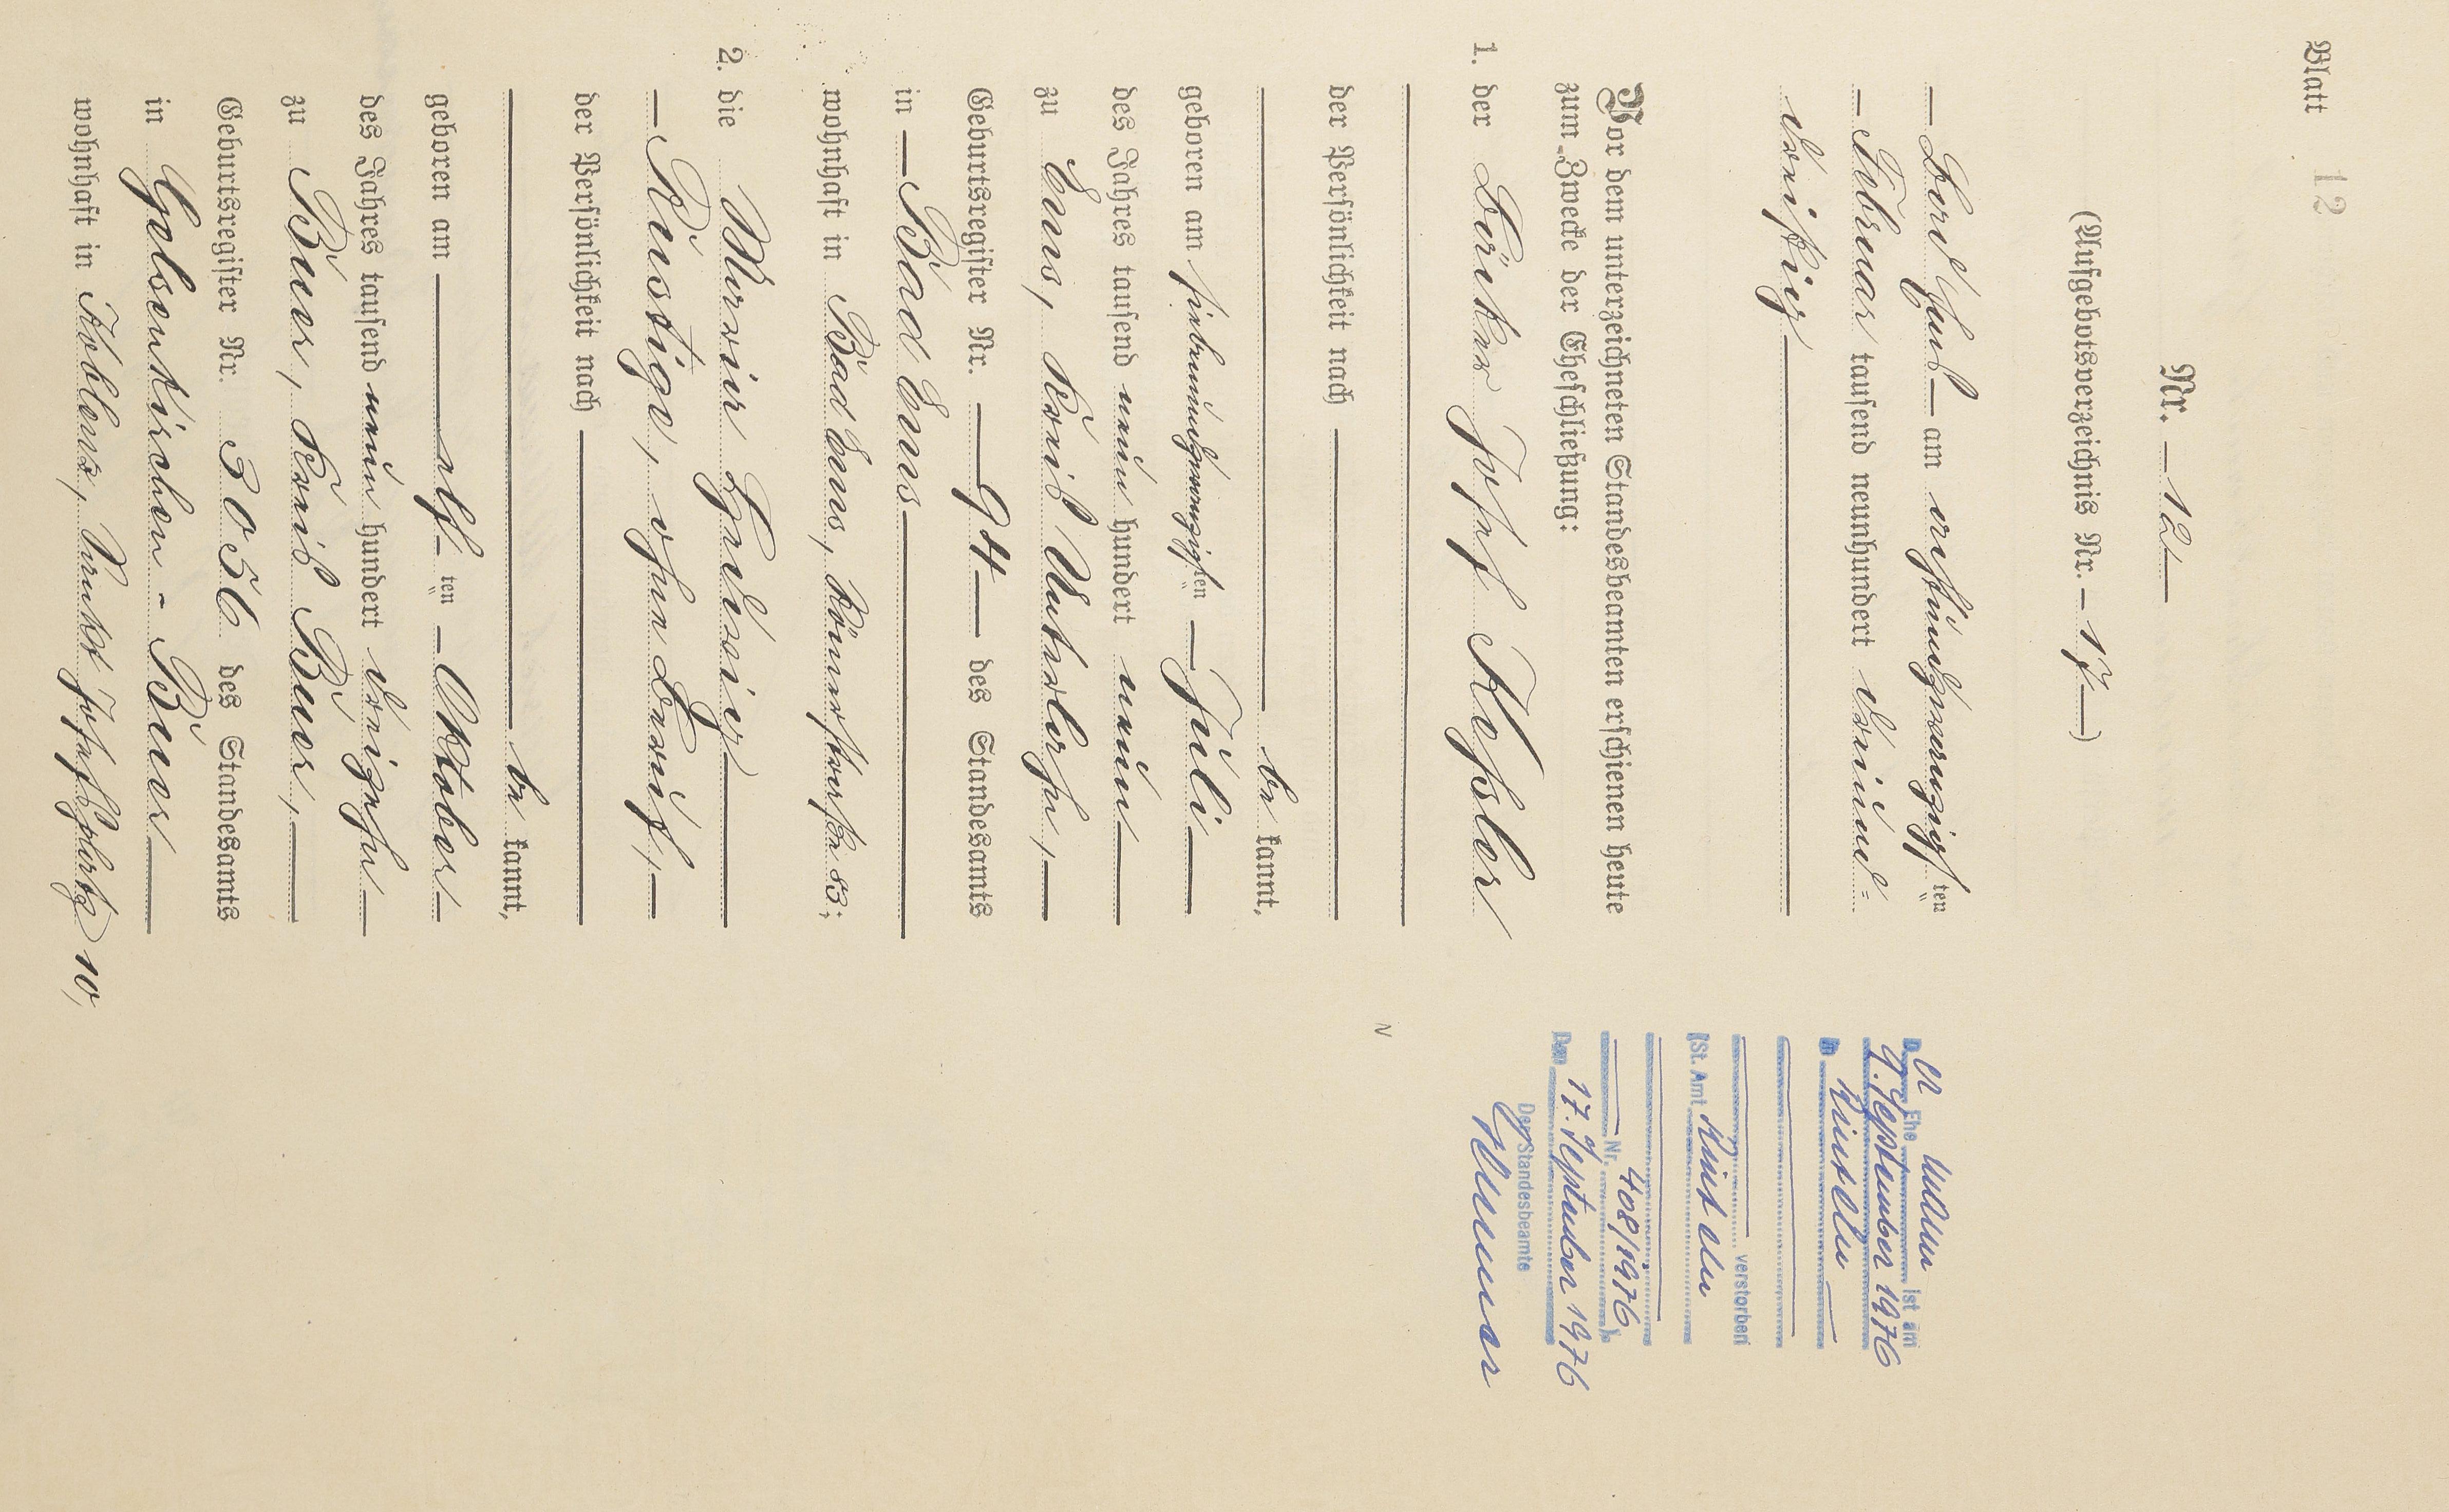 Blatt 12
Nr. — 12 —
(Aufgebotsverzeichnis Nr. — 17 —)
— Bad Ems — am ersundzwanzigsten
— Februar tausend neunhundert neunund=
dreißig —
Vor dem unterzeichneten Standesbeamten erschienen heute
zum Zwecke der Eheschließung:
1. der Bäcker Josef Keßler
der Persönlichkeit nach
be kannt,
geboren am siebenundzwanzigsten — Juli —
des Jahres tausend neun hundert neun —
zu Ems, Kreis Unterlahn, —
Geburtsregister Nr. — 94 — des Standesamts
in — Bad Ems —
wohnhaft in Bad Ems, Römerstraße 83;
2. die Maria Hedwig
— Rüstige, ohne Beruf, —
der Persönlichkeit nach
be kannt,
geboren am elf ten — Oktober —
des Jahres tausend neun hundert dreizehn —
zu Buer, Kreis Buer, —
Geburtsregister Nr. 3056 des Standesamts
in Gelsenkirchen - Buer
wohnhaft in Koblenz, Sankt Josefsplatz 10,
Der Ehemann ist am
9. September 1976
in Rinteln —
verstorben
(St. Amt Rinteln
Nr. 408/1976)
Den 17. September 1976
Der Standesbeamte